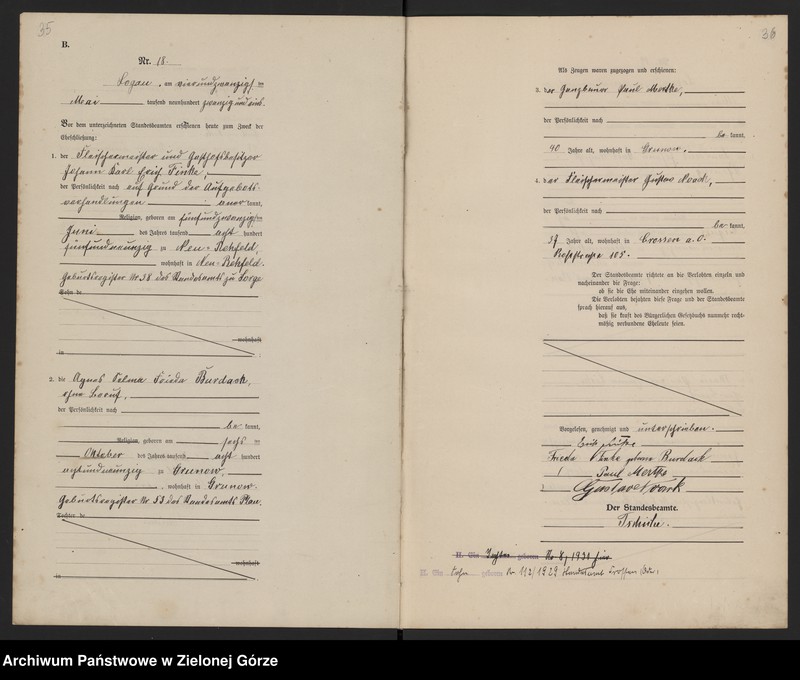 35
B.
Nr. 18.
Logau, am vierundzwanzig ten
Mai tausend neunhundert zwanzig und eins.
Vor dem unterzeichneten Standesbeamten erschienen heute zum Zweck der
Eheschließung:
1. der Fleischermeister und Gasthofbesitzer
Johann Karl Erich Finke,
der Persönlichkeit nach auf Grund der Aufgebots
verhandlungen aner kannt,
Religion, geboren am fünfundzwanzig ten
Juni des Jahres tausend acht hundert
fünfundneunzig zu Neu-Rehfeld,
wohnhaft in Neu-Rehfeld.
Geburtsregister Nr. 38 des Standesamts zu
Sohn de
wohnhaft
in
2. die Agnes Selma Frieda Burdack,
ohne Beruf,
der Persönlichkeit nach
be kannt,
Religion, geboren am sechs ten
Oktober des Jahres tausend acht hundert
achtundneunzig zu Grunow,
wohnhaft in Grunow.
Geburtsregister Nr. 53 des Standesamts Plau.
Tochter de
wohnhaft
in
36
Als Zeugen waren zugezogen und erschienen:
3. der Ganzbauer Paul
der Persönlichkeit nach
be kannt,
40 Jahre alt, wohnhaft in Grunow.
4. der Fleischermeister Gustav Noack,
der Persönlichkeit nach
be kannt,
37 Jahre alt, wohnhaft in Crossen a. O.
105.
Der Standesbeamte richtete an die Verlobten einzeln und
nacheinander die Frage:
ob sie die Ehe miteinander eingehen wollen.
Die Verlobten bejahten diese Frage und der Standesbeamte
sprach hierauf aus,
daß sie kraft des Bürgerlichen Gesetzbuchs nunmehr recht-
mäßig verbundene Eheleute seien.
Vorgelesen, genehmigt und unterschrieben.
Erich Finke
Frieda Finke geborene Burdack
Paul
Gustav Noack
Der Standesbeamte.
II. Ein Tochter geboren Nr. 8, 1931 hier
II. Ein Sohn geboren Nr. 112/1929 Standesamt Crossen (Oder)
Archiwum Państwowe w Zielonej Górze